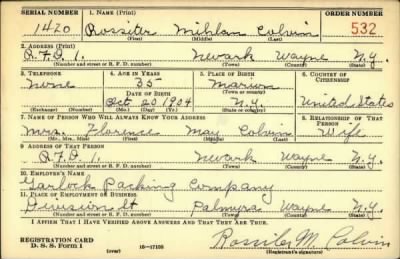 SERIAL NUMBER 1. NAME (Print) ORDER NUMBER
1420 Rossiter Mihlan Colvin 532
(First) (Middle) (Last)
2. ADDRESS (Print)
R.F.D. 1. Newark Wayne N.Y.
(Number and street or R. F. D. number) (Town) (County) (State)
3. TELEPHONE 4. AGE IN YEARS 5. PLACE OF BIRTH 6. COUNTRY OF CITIZENSHIP
None 35 Marion
DATE OF BIRTH (Town or county)
Oct 20 1904 N.Y. United States
(Exchange) (Number) (Mo.) (Day) (Yr.) (State or country)
7. NAME OF PERSON WHO WILL ALWAYS KNOW YOUR ADDRESS 8. RELATIONSHIP OF THAT PERSON
Mrs. Florence May Colvin Wife
(Mr., Mrs., Miss) (First) (Middle) (Last)
9. ADDRESS OF THAT PERSON
R.F.D. 1. Newark Wayne N.Y.
(Number and street or R. F. D. number) (Town) (County) (State)
10. EMPLOYER'S NAME
Garlock Packing Company
11. PLACE OF EMPLOYMENT OR BUSINESS
Division St Palmyra Wayne N.Y.
(Number and street or R. F. D. number) (Town) (County) (State)
I AFFIRM THAT I HAVE VERIFIED ABOVE ANSWERS AND THAT THEY ARE TRUE.
REGISTRATION CARD
D. S. S. Form 1 (over) 16—17105 Rossiter M. Colvin
(Registrant's signature)